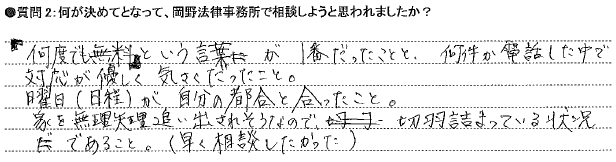 ●質問2:何が決めてとなって、岡野法律事務所で相談しようと思われましたか?
何度でも無料という言葉が1番だったことと、何件か電話した中で
対応が優しく気さくだったこと。
日曜日(日程)が自分の都合と合ったこと。
家を無理矢理追い出されそうなので、切羽詰まっている状況
であること。(早く相談したかった)